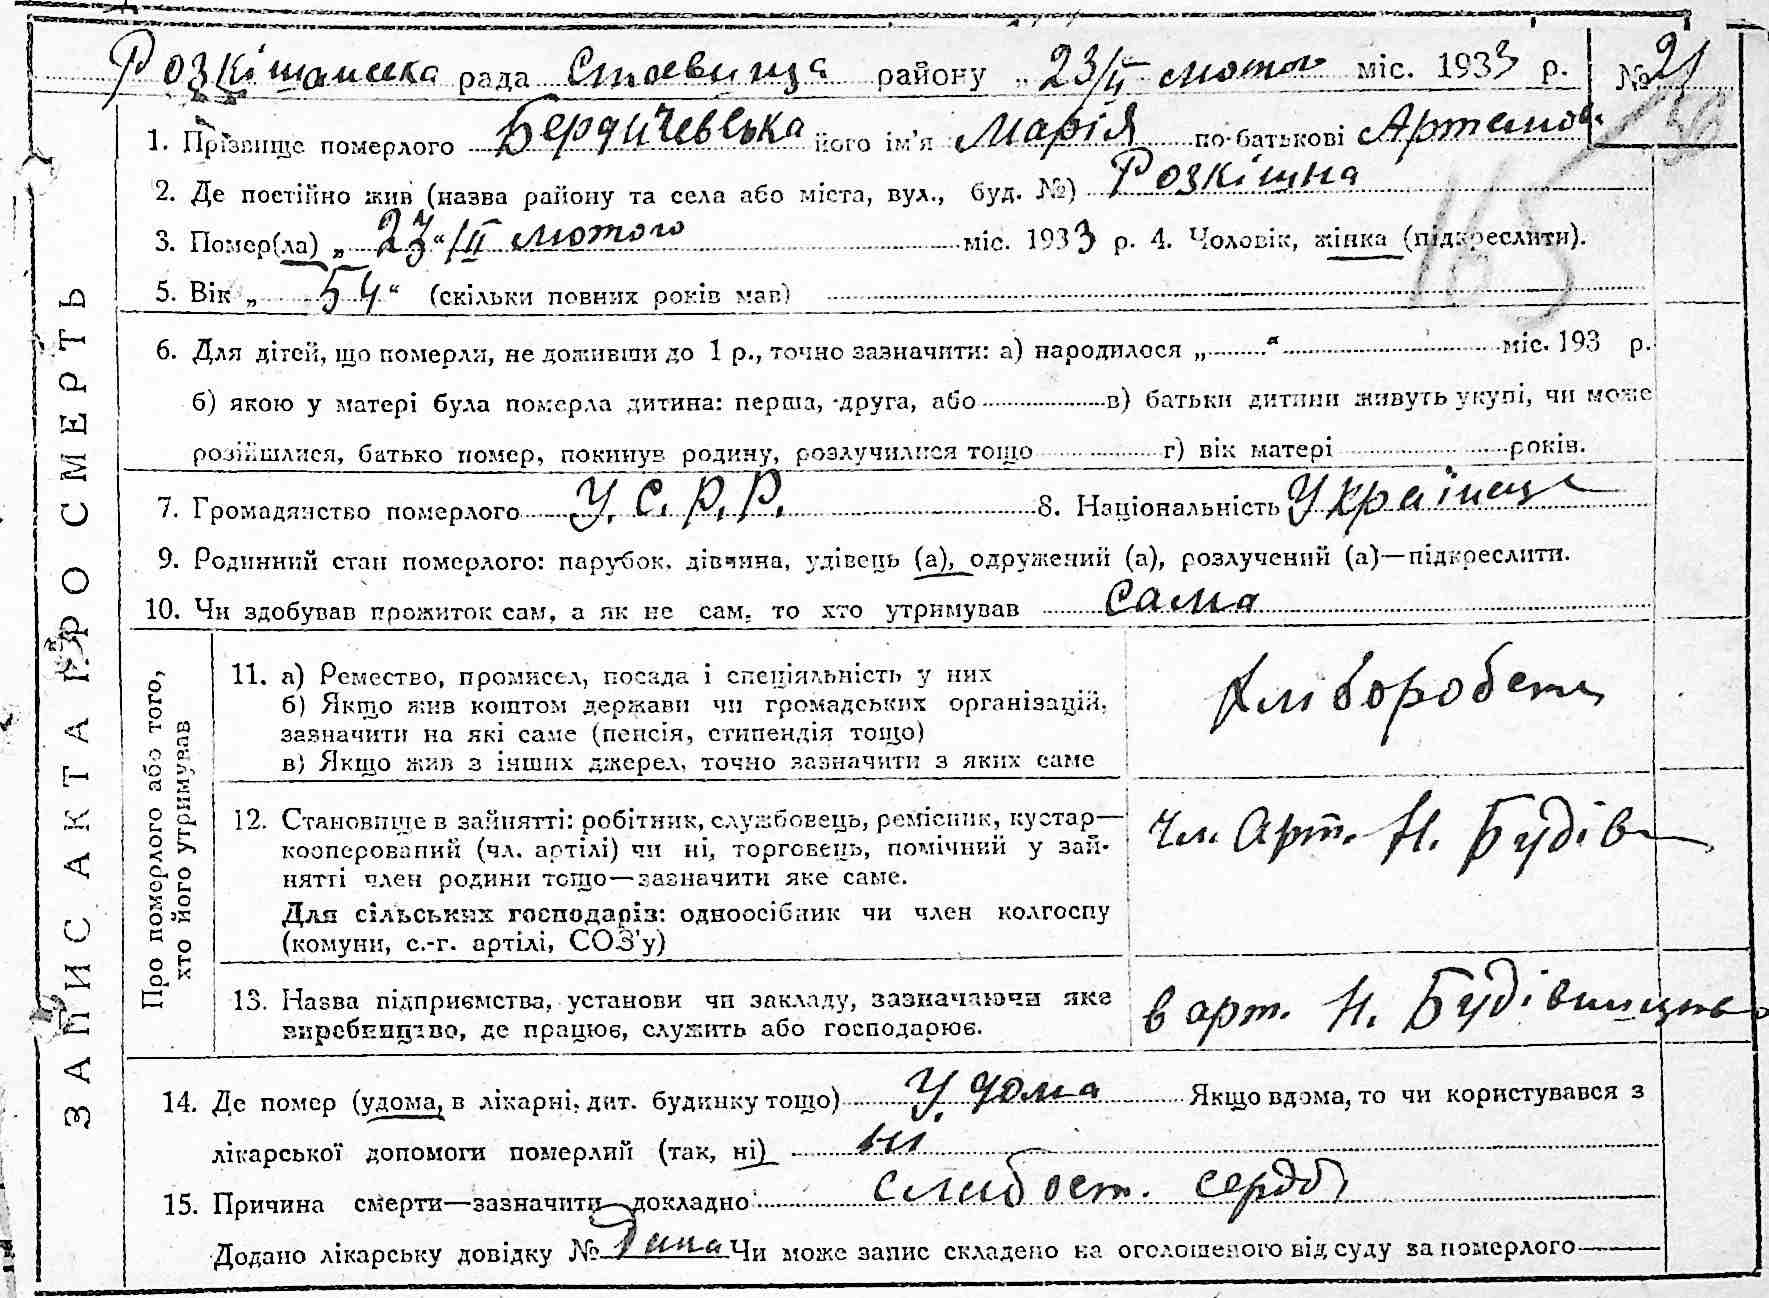 Розкішанська рада Ставища району „ 23/ІІ лютого міс. 1933 р. № 21
1. Прізвище померлого Бердичевська його ім'я Марія по-батькові Артемов.
165
2. Де постійно жив (назва району та села або міста, вул., буд. №) Розкішна
3. Помер(ла) „ 23 “ /ІІ лютого міс. 1933 р. 4. Чоловік, жінка (підкреслити).
5. Вік „ 54 “ (скільки повних років мав)
6. Для дітей, що померли, не доживши до 1 р., точно зазначити: а) народилося „ “ міс. 193 р.
б) якою у матері була померла дитина: перша, друга, або в) батьки дитини живуть укупі, чи може
розійшлися, батько помер, покинув родину, розлучилися тощо г) вік матері років.
7. Громадянство померлого У.С.Р.Р. 8. Національність Українка
9. Родинний стан померлого: парубок, дівчина, удівець (а), одружений (а), розлучений (а)—підкреслити.
10. Чи здобував прожиток сам, а як не сам, то хто утримував сама
ЗАПИС АКТА ПРО СМЕРТЬ
Про померлого або того,
хто його утримував
11. а) Ремество, промисел, посада і спеціяльність у них
б) Якщо жив коштом держави чи громадських організацій,
зазначити на які саме (пенсія, стипендія тощо)
в) Якщо жив з інших джерел, точно зазначити з яких саме
Хлібороб
12. Становище в зайнятті: робітник, службовець, ремісник, кустар—
кооперований (чл. артілі) чи ні, торговець, помічний у зай-
нятті член родини тощо—зазначити яке саме.
Для сільських господарів: одноосібник чи член колгоспу
(комуни, с.-г. артілі, СОЗ'у)
Чл. Арт. Н. Будів
13. Назва підприємства, установи чи закладу, зазначаючи яке
виробництво, де працює, служить або господарює.
в арт. Н. Будівництво
14. Де помер (удома, в лікарні, дит. будинку тощо) У дома Якщо вдома, то чи користувався з
лікарської допомоги померлий (так, ні) ні
15. Причина смерти—зазначити докладно слабост. сердц
Додано лікарську довідку № Чи може запис складено на оголошеного від суду за померлого